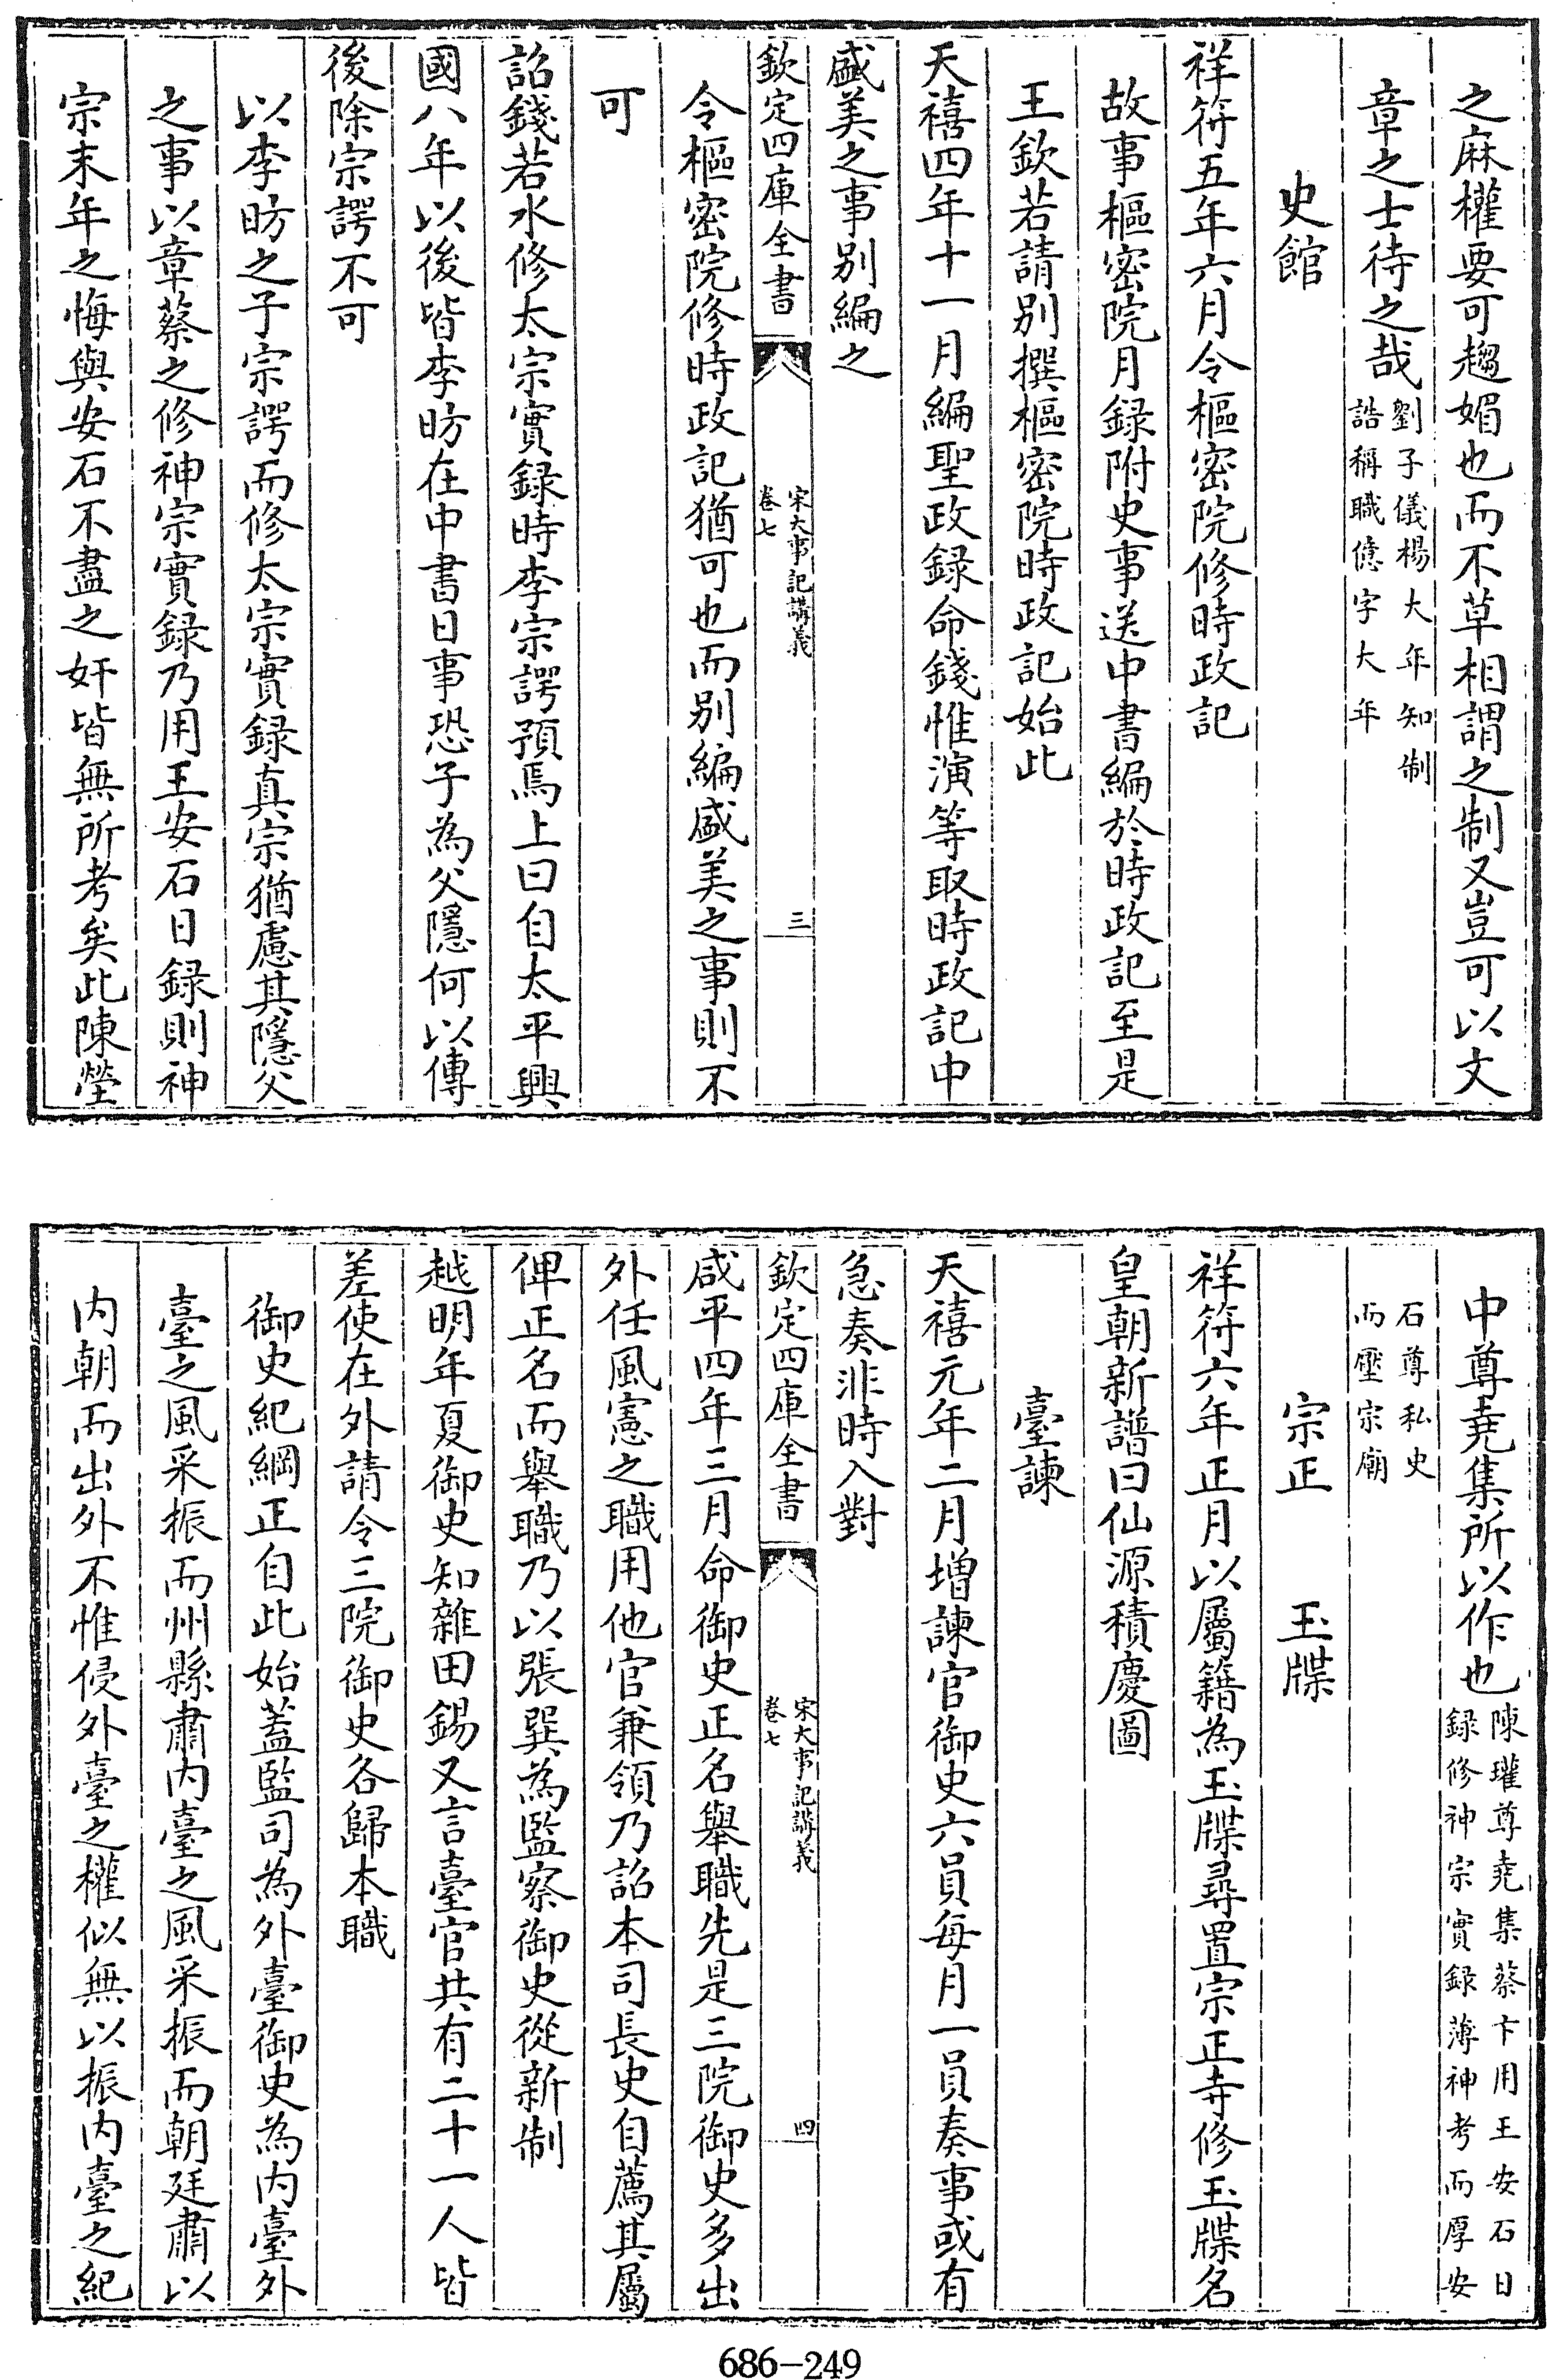 之麻權要可趨媚也而不草相謂之制又豈可以文
章之士待之哉劉子儀楊大年知制誥稱職億字大年
史館
祥符五年六月令樞密院修時政記
故事樞密院月録附史事送中書編於時政記至是
王欽若請別撰樞密院時政記始此
天禧四年十一月編聖政録命錢惟演等取時政記中
盛美之事別編之
欽定四庫全書
宋大事記講義
卷七
三
令樞密院修時政記猶可也而別編盛美之事則不
可
詔錢若水修太宗實録時李宗諤預焉上曰自太平興
國八年以後皆李昉在中書日事恐子為父隱何以傳
後除宗諤不可
以李昉之子宗諤而修太宗實録真宗猶慮其隱父
之事以章蔡之修神宗實録乃用王安石日録則神
宗末年之悔與安石不盡之奸皆無所考矣此陳瑩
中尊堯集所以作也陳瓘尊堯集蔡卞用王安石日録修神宗實録薄神考而厚安
石尊私史而壓宗廟
宗正　玉牒
祥符六年正月以屬籍為玉牒尋置宗正寺修玉牒名
皇朝新譜曰仙源積慶圖
臺諫
天禧元年二月增諫官御史六員每月一員奏事或有
急奏非時入對
欽定四庫全書
宋大事記講義
卷七
四
咸平四年三月命御史正名舉職先是三院御史多出
外任風憲之職用他官兼領乃詔本司長史自薦其屬
俾正名而舉職乃以張巽為監察御史從新制
越明年夏御史知雜田錫又言臺官共有二十一人皆
差使在外請令三院御史各歸本職
御史紀綱正自此始蓋監司為外臺御史為内臺外
臺之風采振而州縣肅内臺之風采振而朝廷肅以
内朝而出外不惟侵外臺之權似無以振内臺之紀
686-249